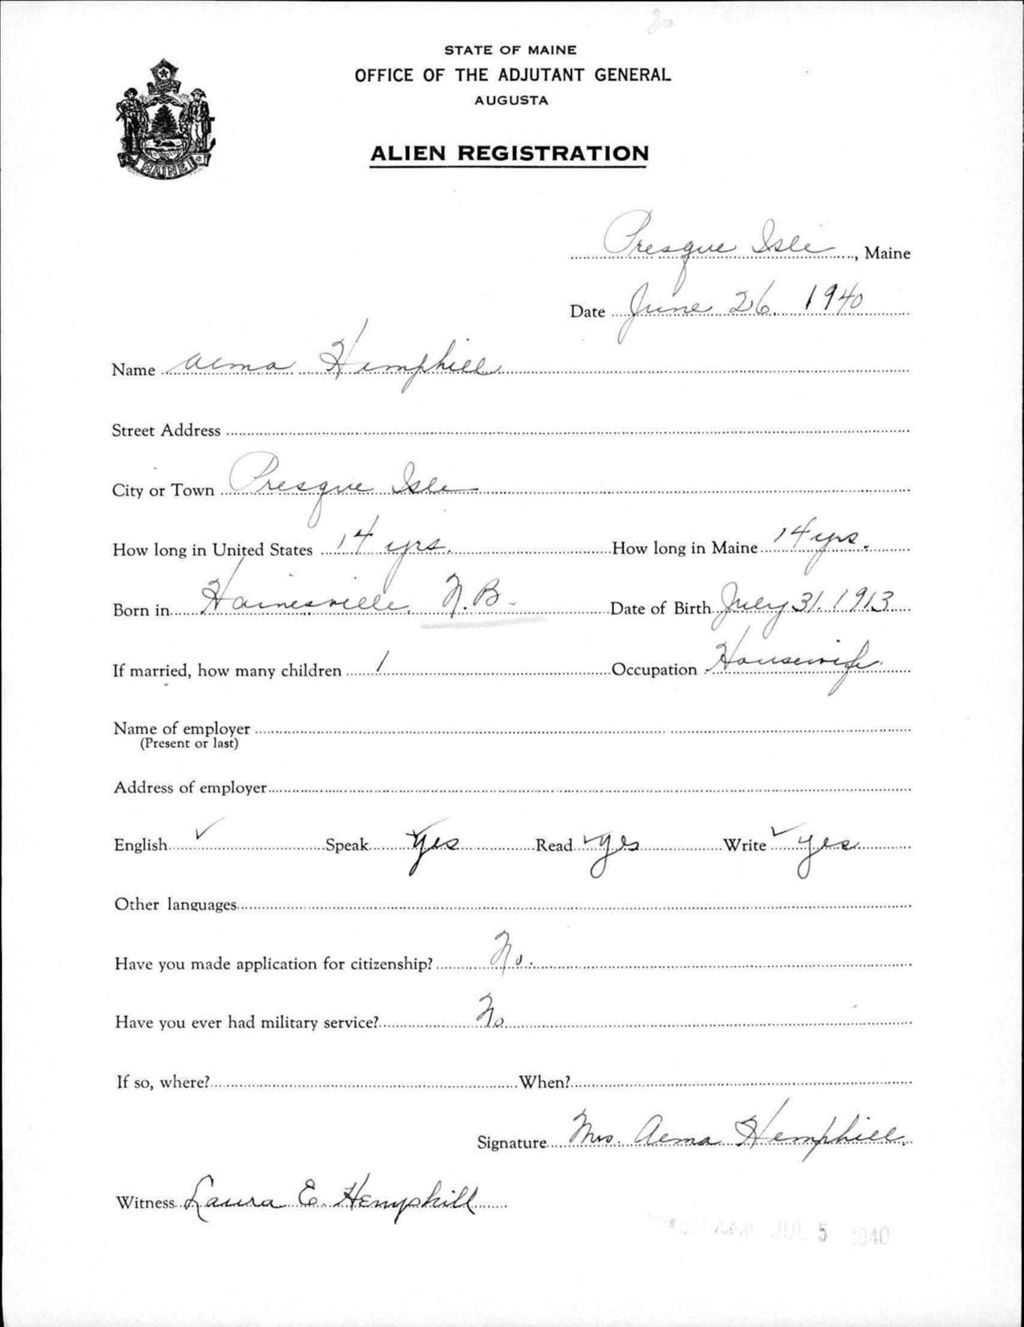 STATE OF MAINE
OFFICE OF THE ADJUTANT GENERAL
AUGUSTA
MAINE
ALIEN REGISTRATION
Presque Isle, Maine
Date June 26, 1940
Name Alma Hemphill
Street Address
City or Town Presque Isle
How long in United States 14 yrs. How long in Maine 14 yrs.
Born in Hainesville, N.B. Date of Birth July 31, 1913
If married, how many children 1 Occupation Housewife
Name of employer
(Present or last)
Address of employer
English ✓ Speak Yes Read ✓ yes Write ✓ yes
Other languages
Have you made application for citizenship? No.
Have you ever had military service? No
If so, where? When?
Signature Mrs. Alma Hemphill
Witness Laura E. Hemphill
JUL 5 1940